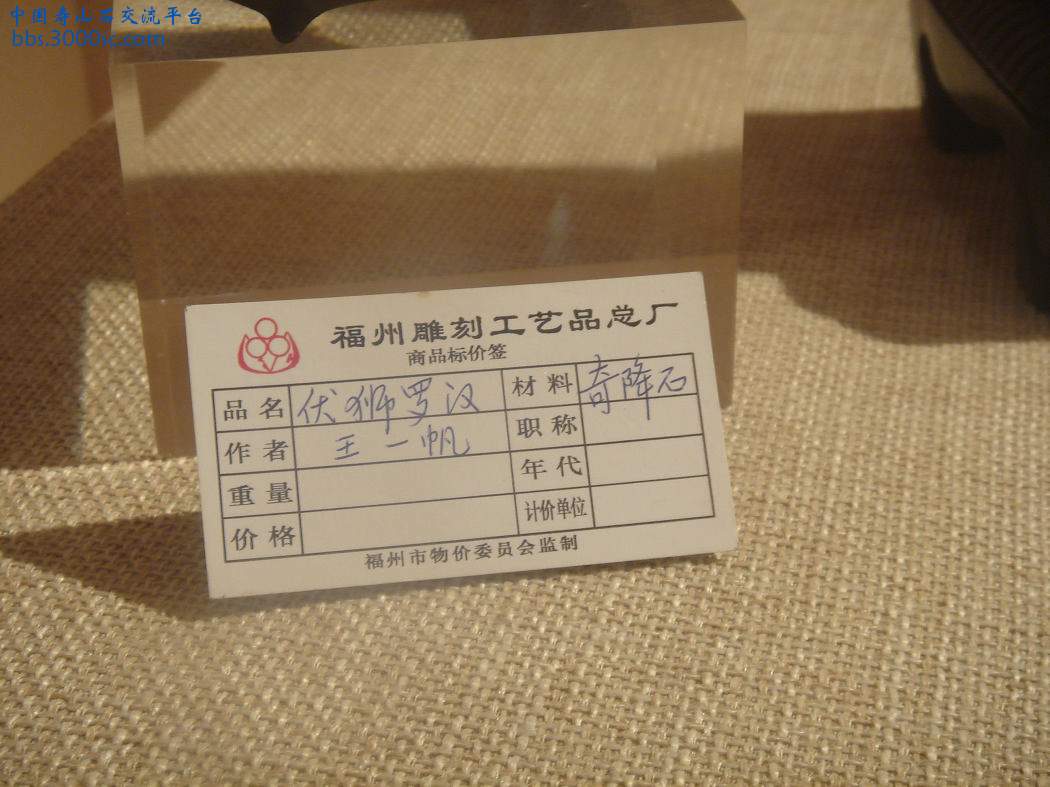 中国寿山石交流平台
bbs.3000ic.com
福州雕刻工艺品总厂
商品标价签
品名 伏狮罗汉 材料 奇降石
作者 王一帆 职称
重量 年代
价格 计价单位
福州市物价委员会监制